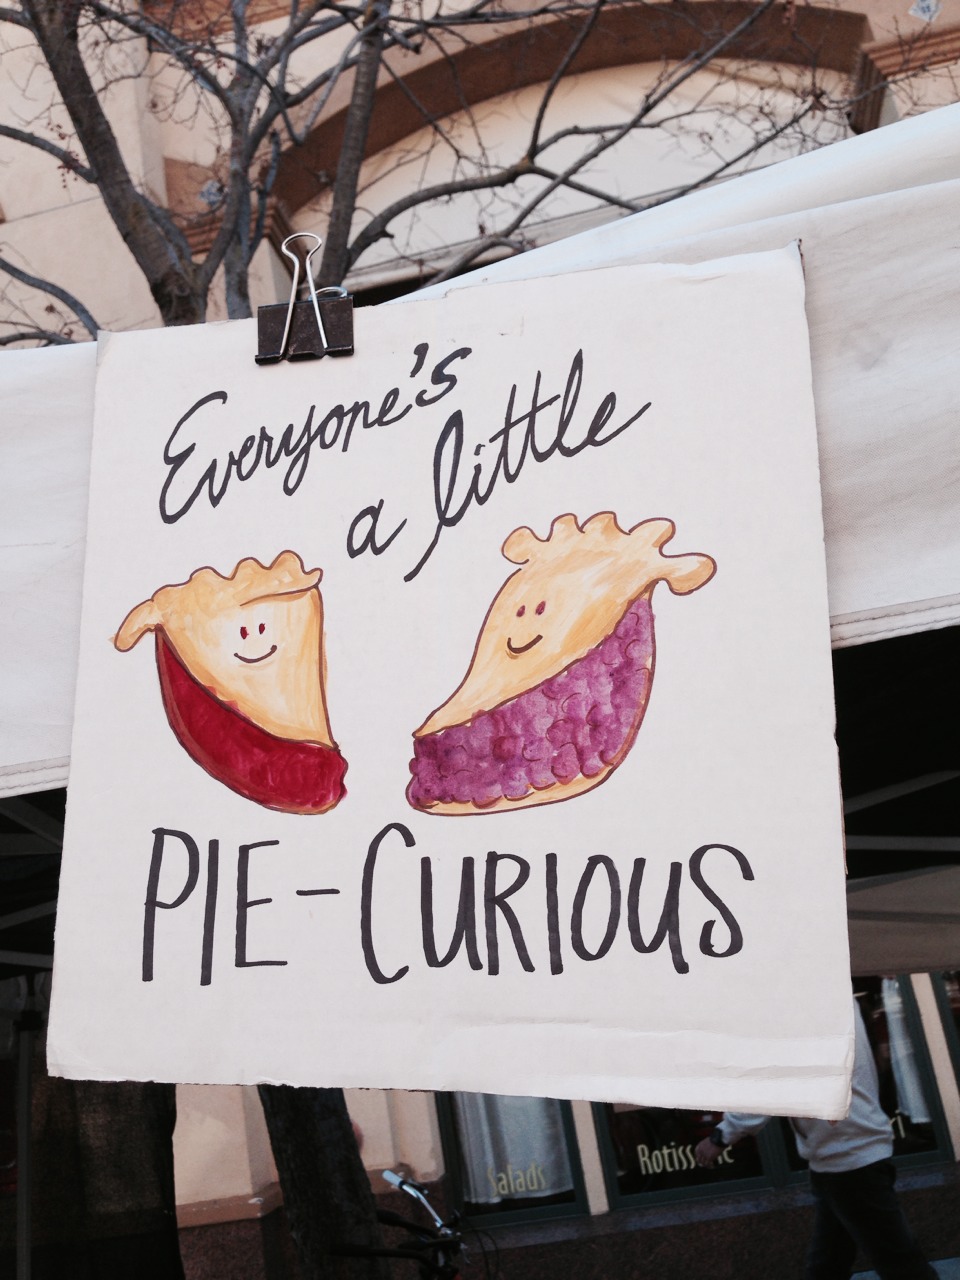 Everyone's
a little
PIE-CURIOUS
Salads